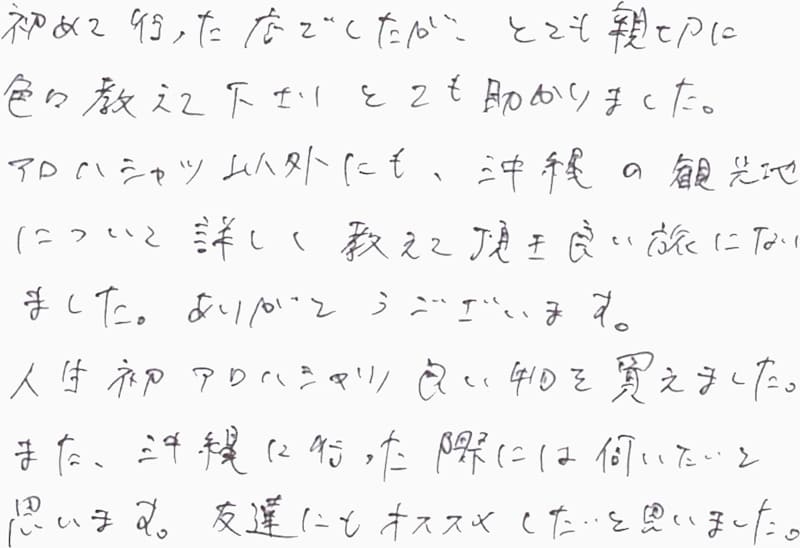 初めて行った店でしたが、とても親切に
色々教えて下さりとても助かりました。
アロハシャツ以外にも、沖縄の観光地
について詳しく教えて頂き良い旅になり
ました。ありがとうございます。
人生初アロハシャツ良い物を買えました。
また、沖縄に行った際には伺いたいと
思います。友達にもオススメしたいと思いました。